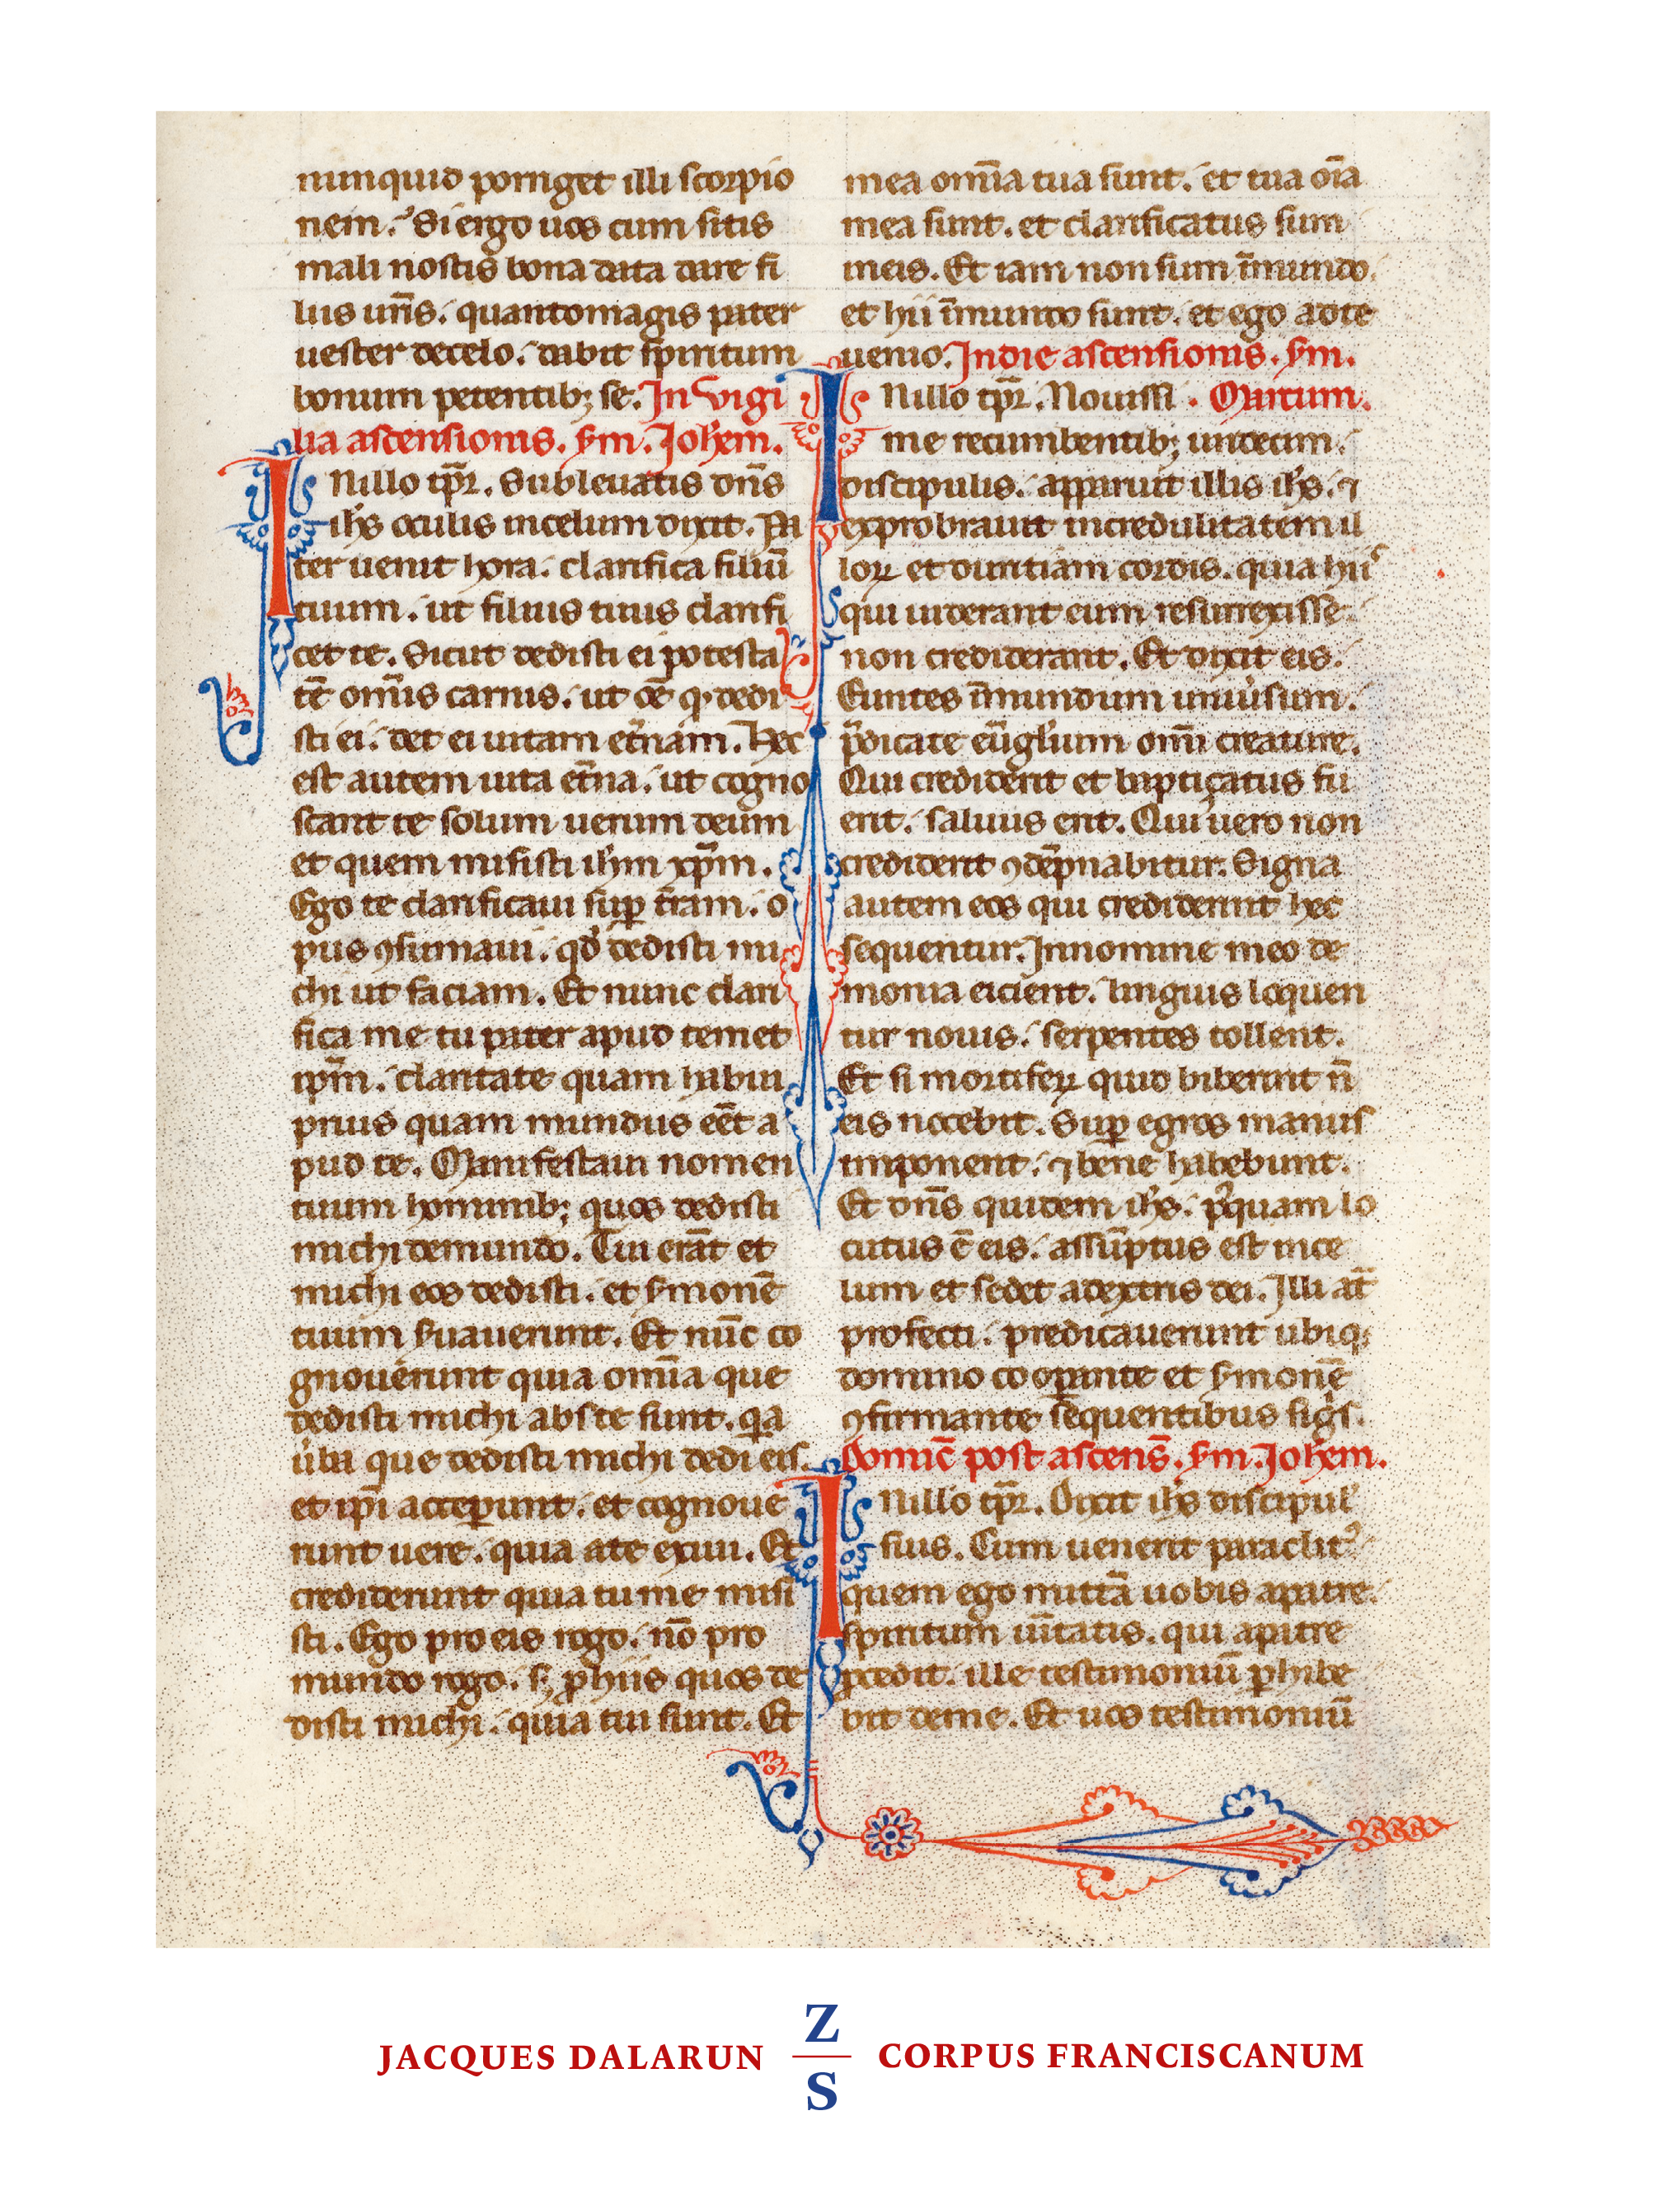 nunquid porriget illi scorpio
nem. Si ergo uos cum sitis
mali nostis bona data dare fi
liis ur̄is. quantomagis pater
uester decelo. dabit spiritum
bonum petentib; se. In vigi
lia ascensionis. sm̄. Joh̄em.
In illo tp̄r. Subleuatis dn̄s
ih̄s oculis incelum dixit. Pa
ter uenit hora. clarifica filiū
tuum. ut filius tuus clarifi
cet te. Sicut dedisti ei potesta
tē om̄is carnis. ut oē qđ dedi
sti ei. det ei uitam et̄nam. Hec
est autem uita et̄na. ut cogno
scant te solum uerum deum
et quem misisti ih̄m xp̄m.
Ego te clarificaui sup̄ t̄ram. o
pus ꝯsumaui. qđ dedisti mi
chi ut faciam. Et nunc clari
fica me tu pater apud temet
ip̄m. claritate quam habui
prius quam mundus eēt a
pud te. Manifestaui nomen
tuum hominib; quos dedisti
michi demundo. Tui erāt et
michi eos dedisti. et s̄monē
tuum s̄uauerunt. Et nūc co
gnouerunt quia om̄ia que
dedisti michi abs te sunt. qa
ūba que dedisti michi dedi eis.
et ip̄i acceꝑunt. et cognoue
runt uere. quia ate exiui. Et
crediderunt quia tu me misi
sti. Ego pro eis rogo. nō pro
mundo rogo. sꝫ ꝓ hiis quos de
disti michi. quia tui sunt. Et
mea om̄ia tua sunt. et tua oīa
mea sunt. et clarificatus sum
ineis. Et iam non sum īmundo.
et hii īmundo sunt. et ego adte
uenio. Indie ascensionis. sm̄.
In illo tp̄r. Nouissi Marcum.
me recumbentib; undecim.
discipulis. apparuit illis ih̄s. ⁊
exprobrauit incredulitatem il
loꝝ et duritiam cordis. quia hii
qui uiderant eum resurrexisse
non crediderant. Et dixit eis.
Euntes īmundum uniūsum.
p̄dicate eūgl̄ium om̄i creature.
Qui crediderit et baptiçatus fu
erit. saluus erit. Qui uero non
crediderit ꝯdēpnabitur. Signa
autem eos qui crediderint hec
sequentur. Innomine meo de
monia eicient. linguis loquen
tur nouis. serpentes tollent.
Et si mortiferꝝ quid biberint n̄
eis nocebit. Sup̄ egros manus
imponent. ⁊ bene habebunt.
Et dn̄s quidem ih̄s. pꝰquam lo
cutus ē eis. assūptus est ince
lum et sedet adextris dei. Illi aūt
profecti. predicauerunt ubiqꝫ
domino cooꝑante et s̄monē
ꝯfirmante sequentibus sigīs.
Domic̄ post ascens̄. sm̄. Joh̄em.
In illo tp̄r. Dixit ih̄s discipul'
suis. Cum uenerit paraclitꝰ
quem ego mittā uobis apatre.
spiritum ūitatis. qui apatre
ꝓcedit. ille testimoniū ꝑhibe
bit deme. Et uos testimoniū
JACQUES DALARUN Z S CORPUS FRANCISCANUM